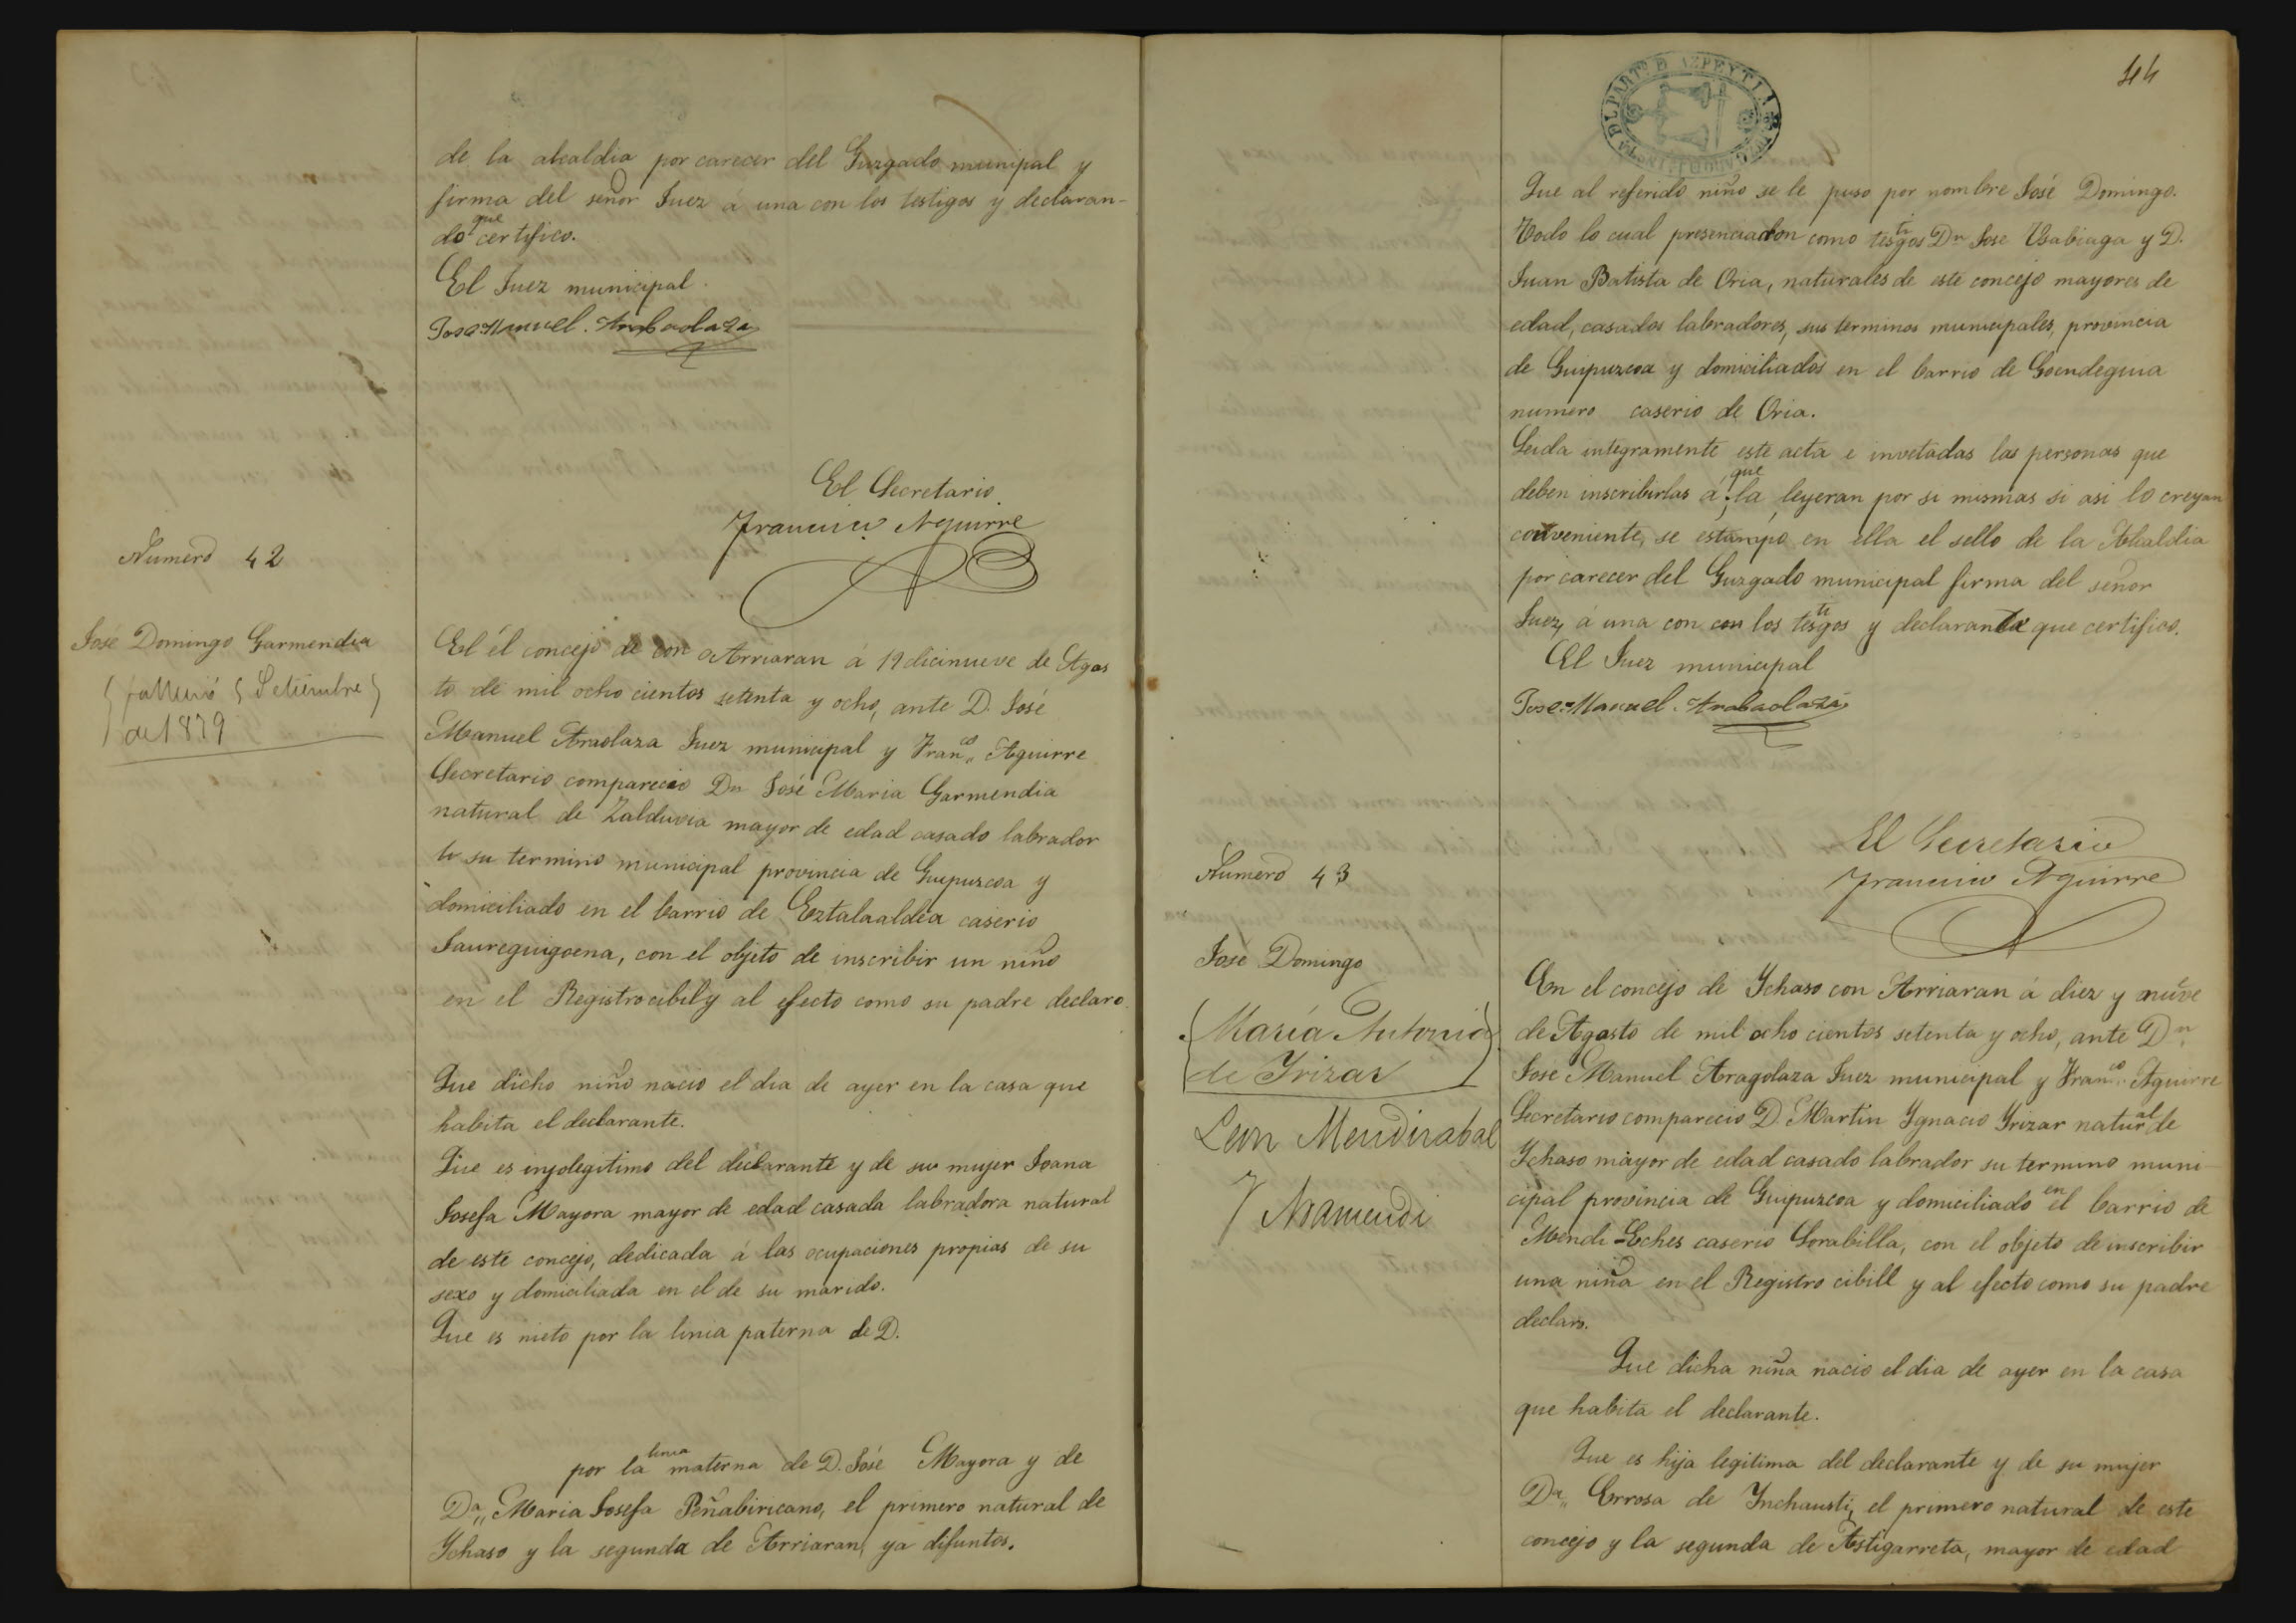 de la alcaldia por carecer del Guzgado munipal y
firma del señor Juez á una con los testigos y declaran-
do que certifico.
El Juez municipal.
Jose Manuel. Arabaolaza
El Secretario.
Francisco Aguirre
Numero 42
José Domingo Garmendia
falleció Setiembre
de 1879
El él concejo de con Arriaran á 19 dicinueve de Agos
to de mil ocho cientos setenta y ocho, ante D. José
Manuel Araolaza Juez municipal y Franco Aguirre
Secretario comparecio Dn José Maria Garmendia
natural de Zalduvia mayor de edad casado labrador
su termino municipal provincia de Guipuzcoa y
domiciliado en el barrio de Eztalaaldea caserio
Jaureguigoena, con el objeto de inscribir un niño
en el Registro cibil y al efecto como su padre declaro.
Que dicho niño nacio el dia de ayer en la casa que
habita el declarante.
Que es injolegitimo del declarante y de su mujer Joana
Josefa Mayora mayor de edad casada labradora natural
de este concejo, dedicada á las ocupaciones propias de su
sexo y domiciliada en el de su marido.
Que es nieto por la linia paterna de D.
por la linia materna de D. José Mayora y de
Da Maria Josefa Peñabiricano, el primero natural de
Ychaso y la segunda de Arriaran, ya difuntos.
44
Que al referido niño se le puso por nombre José Domingo.
Todo lo cual presenciaron como testigos Dn Jose Usabiaga y D.
Juan Batista de Oria, naturales de este concejo mayores de
edad, casados labradores, sus terminos municipales, provincia
de Guipuzcoa y domiciliados en el barrio de Goendegua
numero caserio de Oria.
Leida integramente este acta e invetadas las personas que
deben inscribirlas á que la leyeran por si mismas si asi lo creyan
conveniente, se estampó en ella el sello de la Alcaldia
por carecer del Guzgado municipal firma del señor
Juez, á una con con los testigos y declarante que certifico.
El Juez municipal
Jose Manuel. Arabaolaza
El Secretario
Francisco Aguirre
Numero 43
José Domingo
(María Antonia
de Yrizar)
Leon Mendizabal
Y Aramendi
En el concejo de Ychaso con Arriaran á diez y nuve
de Agosto de mil ocho cientos setenta y ocho, ante Dn
Jose Manuel Aragolaza Juez municipal y Franco Aguirre
Secretario comparecio D. Martin Ygnacio Yrizar natural de
Ychaso mayor de edad casado labrador su termino muni-
cipal provincia de Guipuzcoa y domiciliado en el barrio de
Mendi-Eches caserio Lorabilla, con el objeto de inscribir
una niña en el Registro cibill y al efecto como su padre
declaro.
Que dicha niña nacio el dia de ayer en la casa
que habita el declarante.
Que es hija legitima del declarante y de su mujer
Da Errosa de Ynchausti, el primero natural de este
concejo y la segunda de Astigarreta, mayor de edad